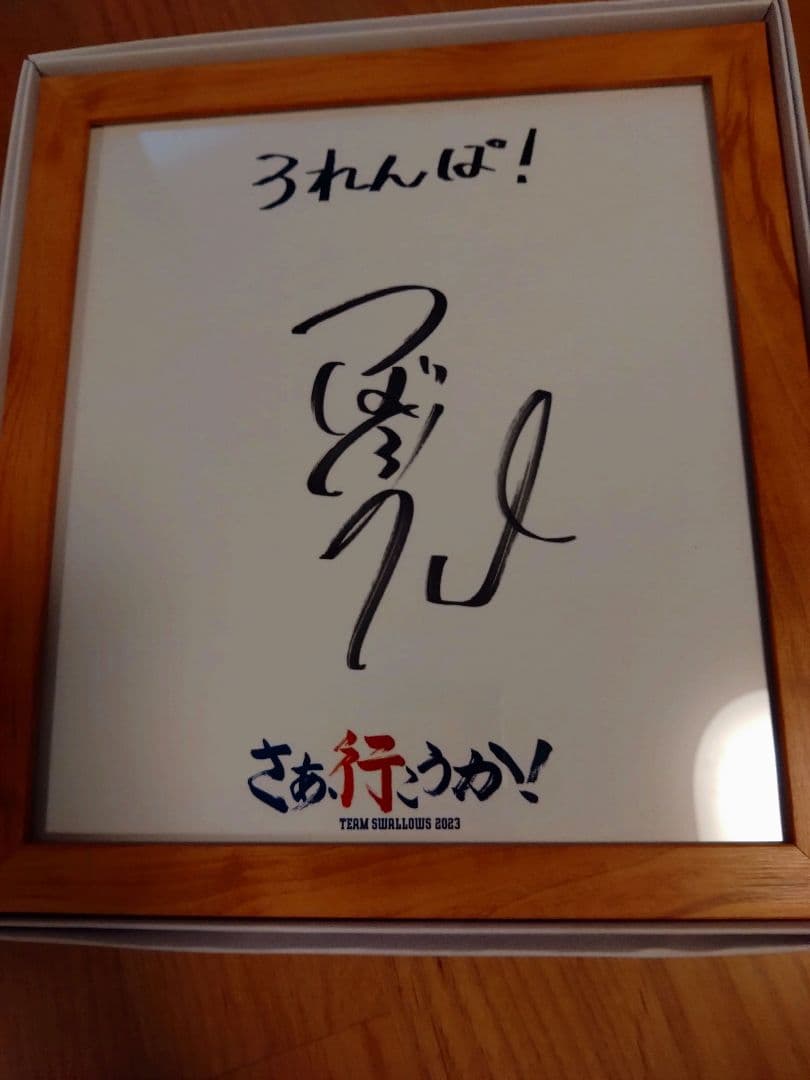 3れんぱ!
つばくろう
さあ、行こうか!
TEAM SWALLOWS 2023